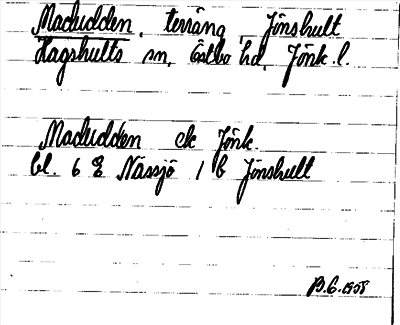 Madudden, terräng, Jönshult
Hagshults sn, Östbo hd, Jönk. l.
Madudden ek Jönk.
bl. 6 E Nässjö 1 b Jönshult
B.G. 1958